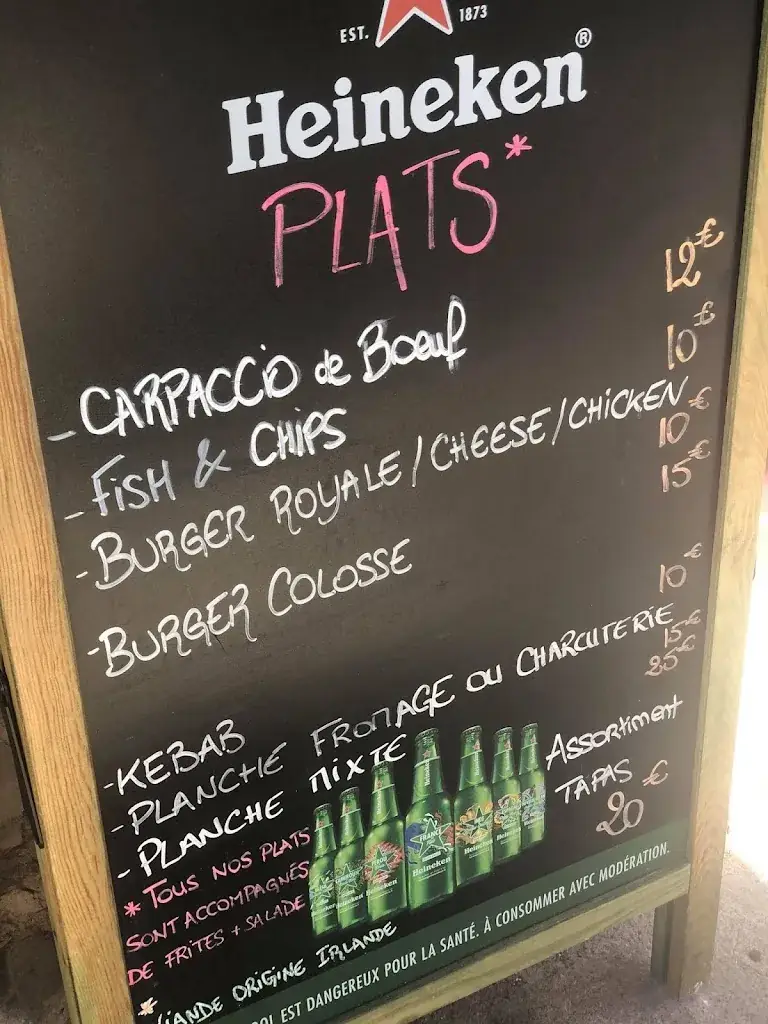 EST. 1873
Heineken®
PLATS*
- CARPACCIO de Boeuf 12€
- FISH & CHIPS 10€
- BURGER ROYALE/CHEESE/CHICKEN 10€
- BURGER COLOSSE 15€
- KEBAB 10€
- PLANCHE FROMAGE OU CHARCUTERIE 15€
- PLANCHE MIXTE 25€
Assortiment
TAPAS
20€
* TOUS NOS PLATS
SONT ACCOMPAGNÉS
DE FRITES + SALADE
* VIANDE ORIGINE IRLANDE
FRANCE
Heineken
OOL EST DANGEREUX POUR LA SANTÉ. À CONSOMMER AVEC MODÉRATION.